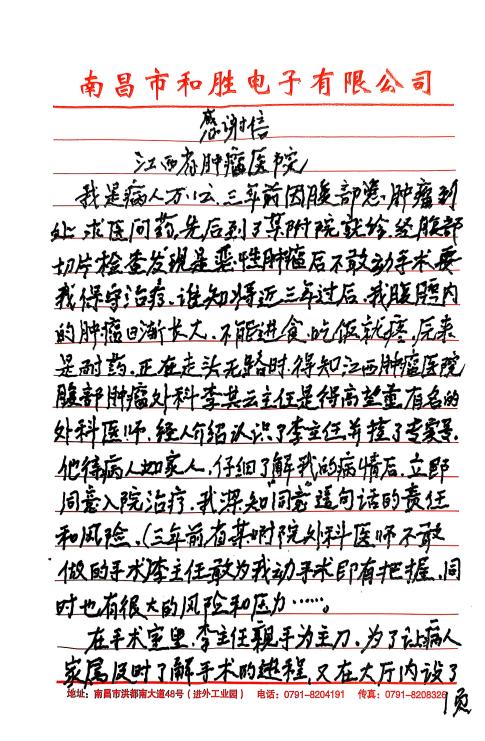 南昌市和胜电子有限公司
感谢信
江西省肿瘤医院
我是病人万公,三年前因腹部患肿瘤到
处求医问药,先后到了某附院就诊,经腹部
切片检查发现是恶性肿瘤后不敢动手术要
我保守治疗,谁知将近三年过后,我腹腔内
的肿瘤日渐长大,不能进食,吃饭就疼,后来
是耐药,正在走头无路时,得知江西肿瘤医院
腹部肿瘤外科李共云主任是德高望重有名的
外科医师,经人介绍认识了李主任并挂了专家号,
他待病人如家人,仔细了解我的病情后,立即
同意入院治疗,我深知"同意"这句话的责任
和风险,(三年前有某附院外科医师不敢
做的手术)李主任敢为我动手术即有把握,同
时也有很大的风险和压力……。
在手术室里,李主任亲手为主刀,为了让病人
家属及时了解手术的进程,又在大厅内设了
地址:南昌市洪都南大道48号(进外工业园) 电话:0791-8204191 传真:0791-8208326
1页